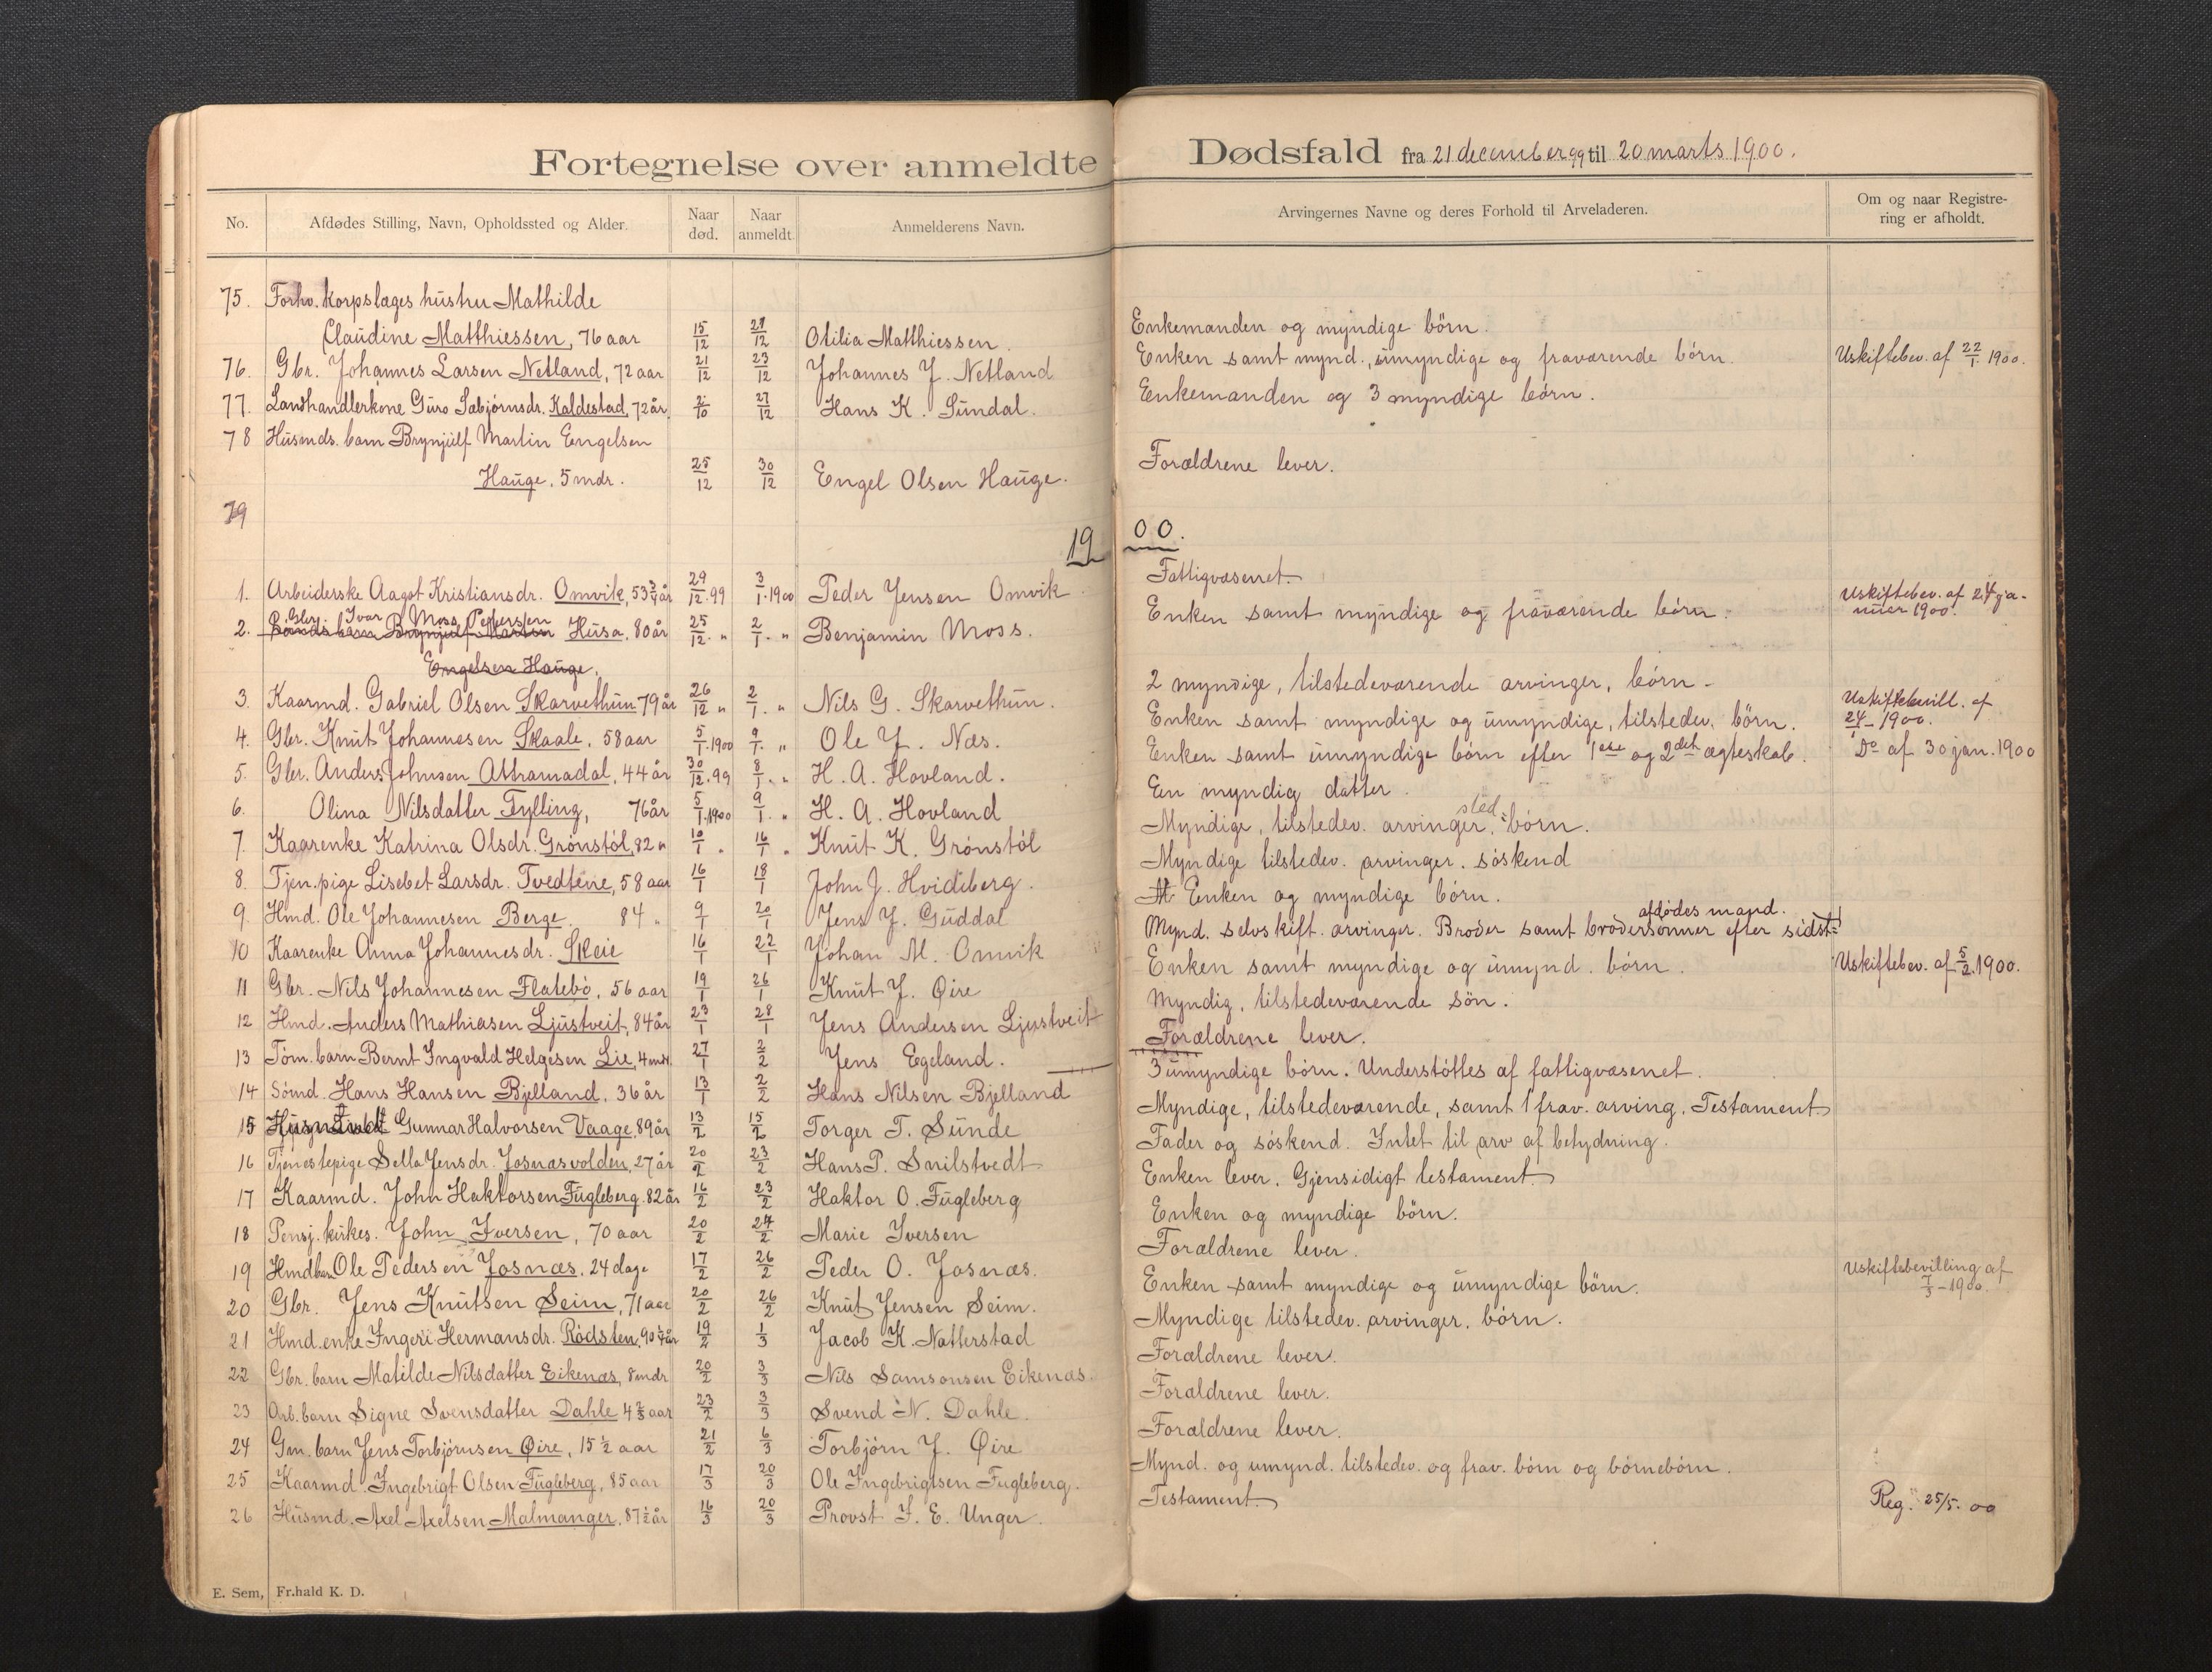 Fortegnelse over anmeldte Dødsfald fra 21 december 99 til 20 marts 1900.
No. Afdødes Stilling, Navn, Opholdssted og Alder. Naar død. Naar anmeldt. Anmelderens Navn. Arvingernes Navne og deres Forhold til Arveladeren. Om og naar Registrering er afholdt.
75. Forhv. Korpslæges hustru Mathilde
Claudine Matthiessen, 76 aar 15/12 21/12 Otilia Matthiessen. Enkemanden og myndige børn.
76. Gbr. Johannes Larsen Netland, 72 aar 21/12 23/12 Johannes J. Netland Enken samt mynd., umyndige og fraværende børn. Uskiftebev. af 22/1 1900.
77. Landhandlerkone Guro Sæbjørnsdr. Kaldestad, 72 år. 2/10 27/12 Hans K. Sundal. Enkemanden og 3 myndige børn.
78 Husmds. barn Brynjulf Martin Engelsen
Hauge, 5 mdr. 25/12 30/12 Engel Olsen Hauge. Forældrene lever.
79
1900.
1. Arbeiderske Aagot Kristiansdr. Omvik, 53 3/4 år 29/12.99 3/1.1900 Peder Jensen Omvik Fattigvæsenet.
2. Gbr. Ivar Moss Pedersen Husa, 80 år 25/12. " 2/1. " Benjamin Moss. Enken samt myndige og fraværende børn. Uskiftebev. af 24 januar 1900.
Engelsen Hauge.
3. Kaarmd. Gabriel Olsen Skarvethun 79 år 26/12 " 2/1. " Nils G. Skarvethun. 2 myndige, tilstedeværende arvinger, børn.
4. Gbr. Knut Johannesen Skaale, 58 aar 5/1.1900 9/1. " Ole J. Næs. Enken samt myndige og umyndige, tilstedev. børn. Uskiftebevill. af 24/1 1900.
5. Gbr. Anders Johnsen Attramadal, 44 år 30/12.99 8/1. " H. A. Hovland. Enken samt umyndige børn efter 1ste og 2det ægteskab. Do af 30 jan. 1900
6. Olina Nilsdatter Tylling, 76 år 5/1.1900 9/1. " H. A. Hovland En myndig datter.
7. Kaarenke Katrina Olsdr. Grønstøl, 82 " 10/1 " 16/1 " Knut K. Grønstøl Myndige, tilstedev. arvinger, sted-børn.
8. Tjen.pige Lisebet Larsdr. Tvedtene, 58 aar 16/1 18/1 John J. Hvideberg. Myndige tilstedev. arvinger. søskend
9. Hmd. Ole Johannesen Berge. 84 " 9/1 20/1 Jens J. Guddal M Enken og myndige børn.
10 Kaarenke Anna Johannesdr. Skeie 16/1 22/1 Johan M. Omvik Mynd. selvskift. arvinger. Broder samt brodersønner efter sidst= afdødes mand.
11 Gbr. Nils Johannesen Flatebø, 56 aar 19/1 26/1 Knut J. Øire Enken samt myndige og umynd. børn. Uskiftebev. af 5/2.1900.
12 Hmd. Anders Mathiasen Ljustveit, 84 år 23/1 28/1 Jens Andersen Ljustveit Myndig, tilstedeværende søn.
13 Tøm. barn Bernt Ingvald Helgesen Lie, 4 mdr. 27/1 2/2 Jens Egeland. Forældrene lever.
14 Sømd. Hans Hansen Bjelland, 36 år 13/1 2/2 Hans Nilsen Bjelland 3 umyndige børn. Understøttes af fattigvæsenet.
15 Gunnar Halvorsen Vaage, 89 år 13/2 15/2 Torger T. Sunde Myndige, tilstedeværende, samt 1 frav. arving. Testament
16 Tjenestepige Sella Jensdr. Josnæsvolden, 27 år 20/2 23/2 Hans P. Snilstvedt Fader og søskend. Intet til arv af betydning.
17 Kaarmd. John Haktorsen Fugleberg. 82 år 16/2 23/2 Haktor O. Fugleberg Enken lever. Gjensidigt testament.
18 Pensj. kirkes. John Iversen, 70 aar 20/2 24/2 Marie Iversen Enken og myndige børn.
19 Hmdbarn Ole Pedersen Josnæs. 24 dage 17/2 26/2 Peder O. Josnæs. Forældrene lever.
20 Gbr. Jens Knutsen Seim, 71 aar 20/2 26/2 Knut Jensen Seim. Enken samt myndige og umyndige børn. Uskiftebevilling af 7/3 - 1900.
21 Hmd. enke Ingeri Hermansdr. Rødsten, 90 1/4 år 19/2 1/3 Jacob K. Natterstad Myndige tilstedev. arvinger, børn.
22 Gbr. barn Matilde Nilsdatter Eikenæs, 8 mdr 20/2 3/3 Nils Samsonsen Eikenæs. Forældrene lever.
23 Arb. barn Signe Svensdatter Dahle 4 2/3 aar 23/2 3/3 Svend N. Dahle. Forældrene lever.
24 Gm. barn Jens Torbjørnsen Øire, 15 1/2 aar 21/2 6/3 Torbjørn J. Øire Forældrene lever.
25 Kaarmd. Ingebrigt Olsen Fugleberg, 85 aar 17/3 20/3 Ole Ingebrigtsen Fugleberg. Mynd. og umynd. tilstedev. og frav. børn og børnebørn.
26 Husmd. Axel Axelsen Malmanger, 87 1/2 år 16/3 20/3 Provst J. E. Unger. Testament. Reg. 25/5. 00
E. Sem, Fr.hald K. D.